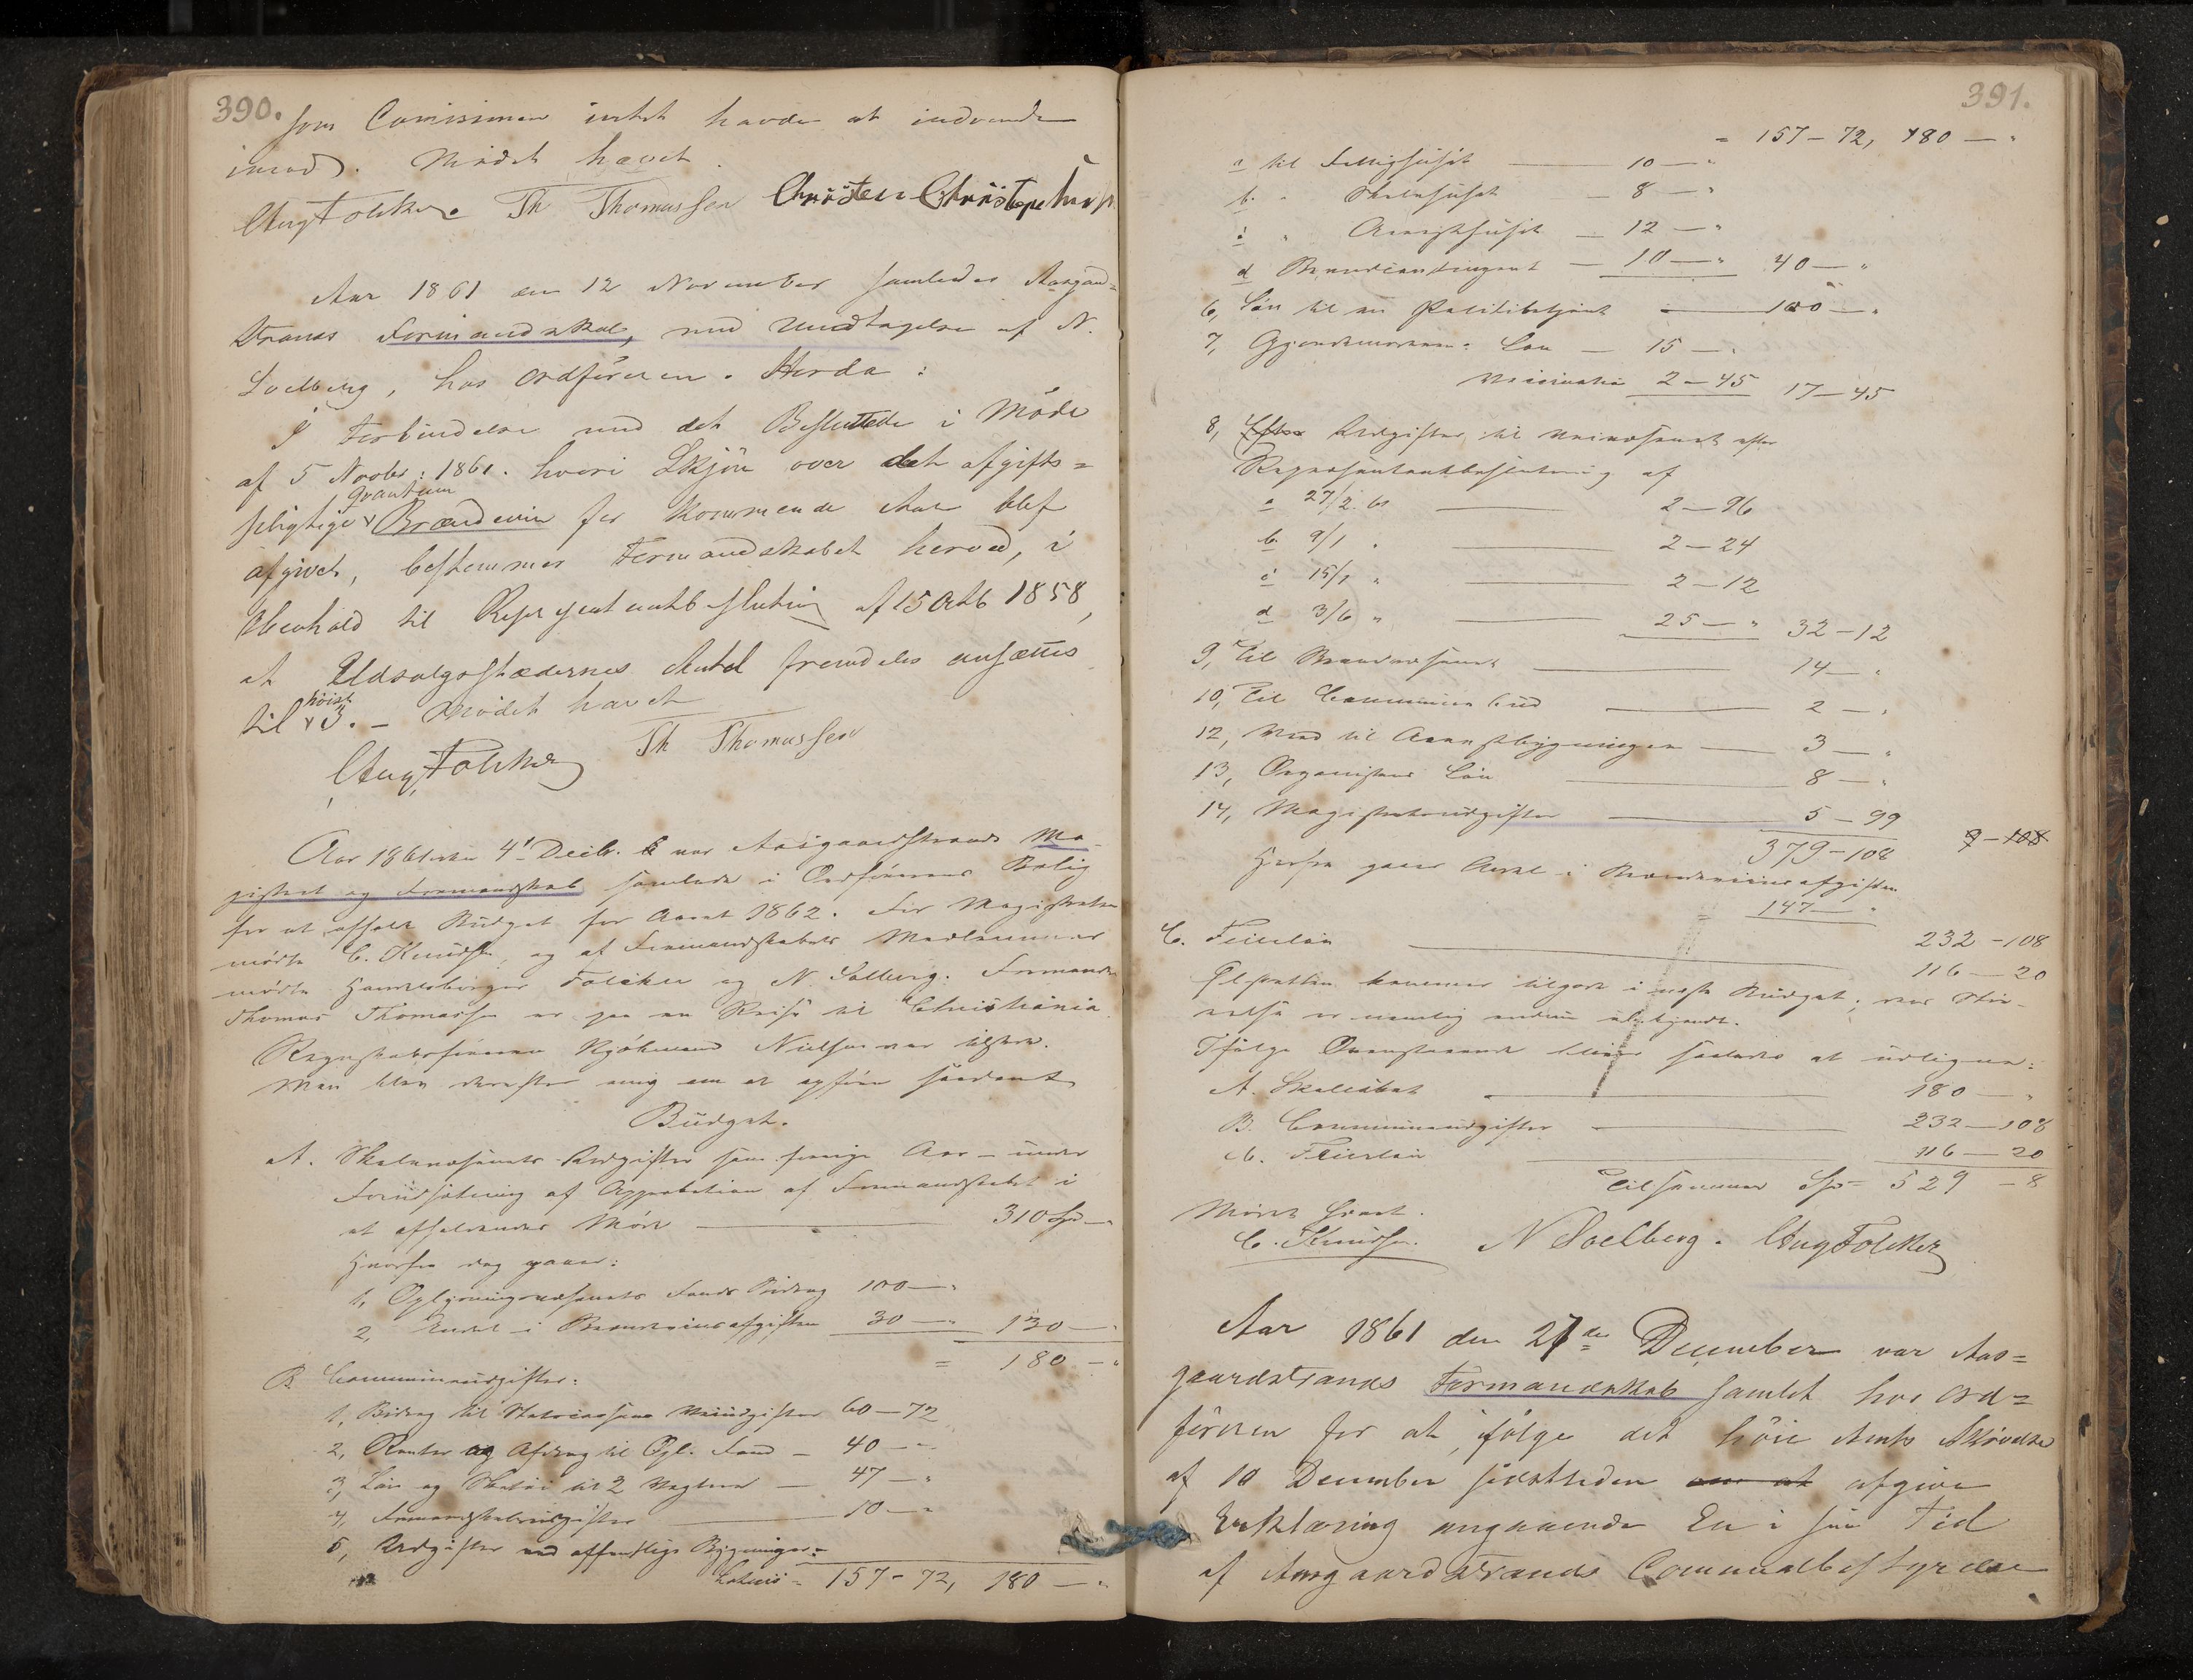 390.
som Comissionen intet havde at indvende
imod. Mödet hævet.
Aug Folcker Th Thomassen Christen Christophersen
Aar 1861 den 12 November samledes Aasgaard=
strands Formandskab, med Undtagelse af N.
Soelberg, hos Ordföreren. Hvorda:
I Forbindelse med det Besluttede i Möde
af 5 Novbr: 1861. hvori Skjön over det afgifts=
pligtige Qvantum Brændeviin for kommende Aar blef
afgivet, bestemmer Formandskabet herved, i
Henhold til Repræsentantbeslutning af 15 Octb 1858,
at Udsalgsstædernes Antal fremdeles ansættes
til höist 3. – Mödet hævet
Aug Folcker Th Thomassen
Aar 1861 den 4de Decbr. var Aasgaardstrands Ma-
gistrat og Formandskab samlede i Ordförerens Bolig
for at affatte Budget for Aaret 1862. For Magistraten
mödte C. Knudsen, og af Formandskabets Medlemmer
mödte Handelsborger Folcker og N. Solberg. Formand
Thomas Thomassen er paa en Reise til Christiania.
Regnskabsföreren Kjöbmand Nielsen var tilstede.
Man blev derefter enig om at opföre saadant
Budget.
A. Skolevæsenets Udgifter som forrige Aar – under
Forudsætning af Approbation af Formandskabet i
et afholdendes Möde — 310 Spd –
Hvorfra dog gaaer:
1, Oplysningsvæsenets Fonds Bidrag 100 — "
2, Andel i Brændeviinsafgiften 30 — " 130 — "
= 180 — "
B. Communeudgifter:
1, Bidrag til 60 – 72
2, Renter og Afdrag til Opl. Fond – 40 — "
3, Lön og til 2 Vægtere — 47 — "
4, Formandskabsudgifter — 10 — "
5, Udgifter ved offentlige Bygninger:
Latus = 157 – 72, 180 — "
391.
= 157 – 72, 180 — "
a til Fattighuset — 10 — "
b. " Skolehuset — 8 — "
c " Arresthuset — 12 — "
d Brandcontingent — 10 — " 40 — "
6, Lön til en Politibetjent — 100 — "
7, Gjordemoderens Lön — 15 — "
2 – 45 17 – 45
8, Efter Udgifter til Veivæsenet efter
Repræsentantbeslutning af
a 27/2 61 — 2 – 96
b. 9/1 " — 2 – 24
c 15/1 " — 2 – 12
d 3/6 " — 25 – " 32 – 12
9, Til Brandvæsenet — 14 — "
10, Til Communens Bud — 2 — "
12, Ved til Arrestbygningen — 3 — "
13, Organistens Lön — 8 — "
14, Magistratsudgifter — 5 – 99
379 – 108 9 – 108
Herfra gaaer Andel i Brændeviinsafgiften
= 147 — "
232 – 108
C. Feierlön — 116 – 20
kommer tilgode i næste Budget; dens Stör-
relse er nemlig endnu ubekjendt.
Ifölge Ovenstaaende bliver saaledes at udligne:
A. Skoleskat — 180 — "
B. Communeudgifter — 232 – 108
C. Feierlön — 116 – 20
Tilsammen Spd= 529 – 8
Mödet hævet.
C. Knudsen. N Soelberg. Aug Folcker
Aar 1861 den 27de December var Aas=
gaardstrands Formandskab samlet hos Ord=
föreren for at, ifölge det höie Amts Skrivelse
af 10 December sidstleden om at afgive
Erklæring angaaende En i sin Tid
af Aasgaardstrands Communalbestyrelse